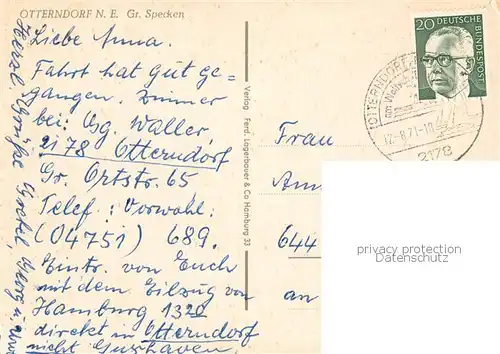 OTTERNDORF N. E. Gr. Specken
Liebe Anna.
Fahrt hat gut ge-
gangen. Zimmer
bei: Gg. Waller,
2178 Otterndorf
Gr. Ortstr. 65
Telef.: Vorwahl:
(04751) 689.
Eintr. von Euch
mit dem Eilzug von
Hamburg 1320
direkt in Otterndorf
nicht Cuxhaven.
Herzl. Grüße
Verlag Ferd. Lagerbauer & Co Hamburg 33
20 DEUTSCHE
BUNDESPOST
OTTERNDORF
2178
Frau
644
an
privacy protection